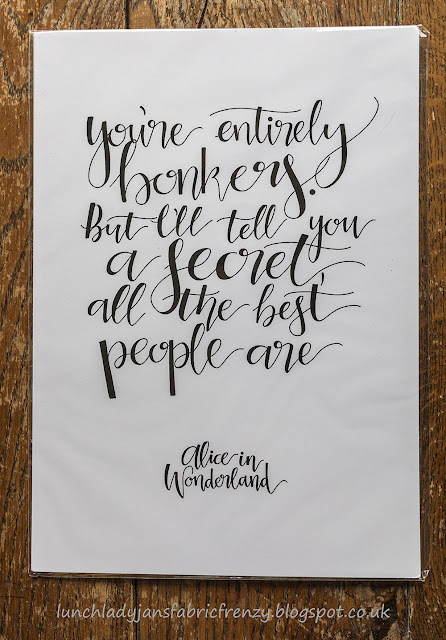 you're entirely
bonkers.
But I'll tell you
a secret,
all the best
people are
Alice in
Wonderland
lunchladyjansfabricfrenzy.blogspot.co.uk